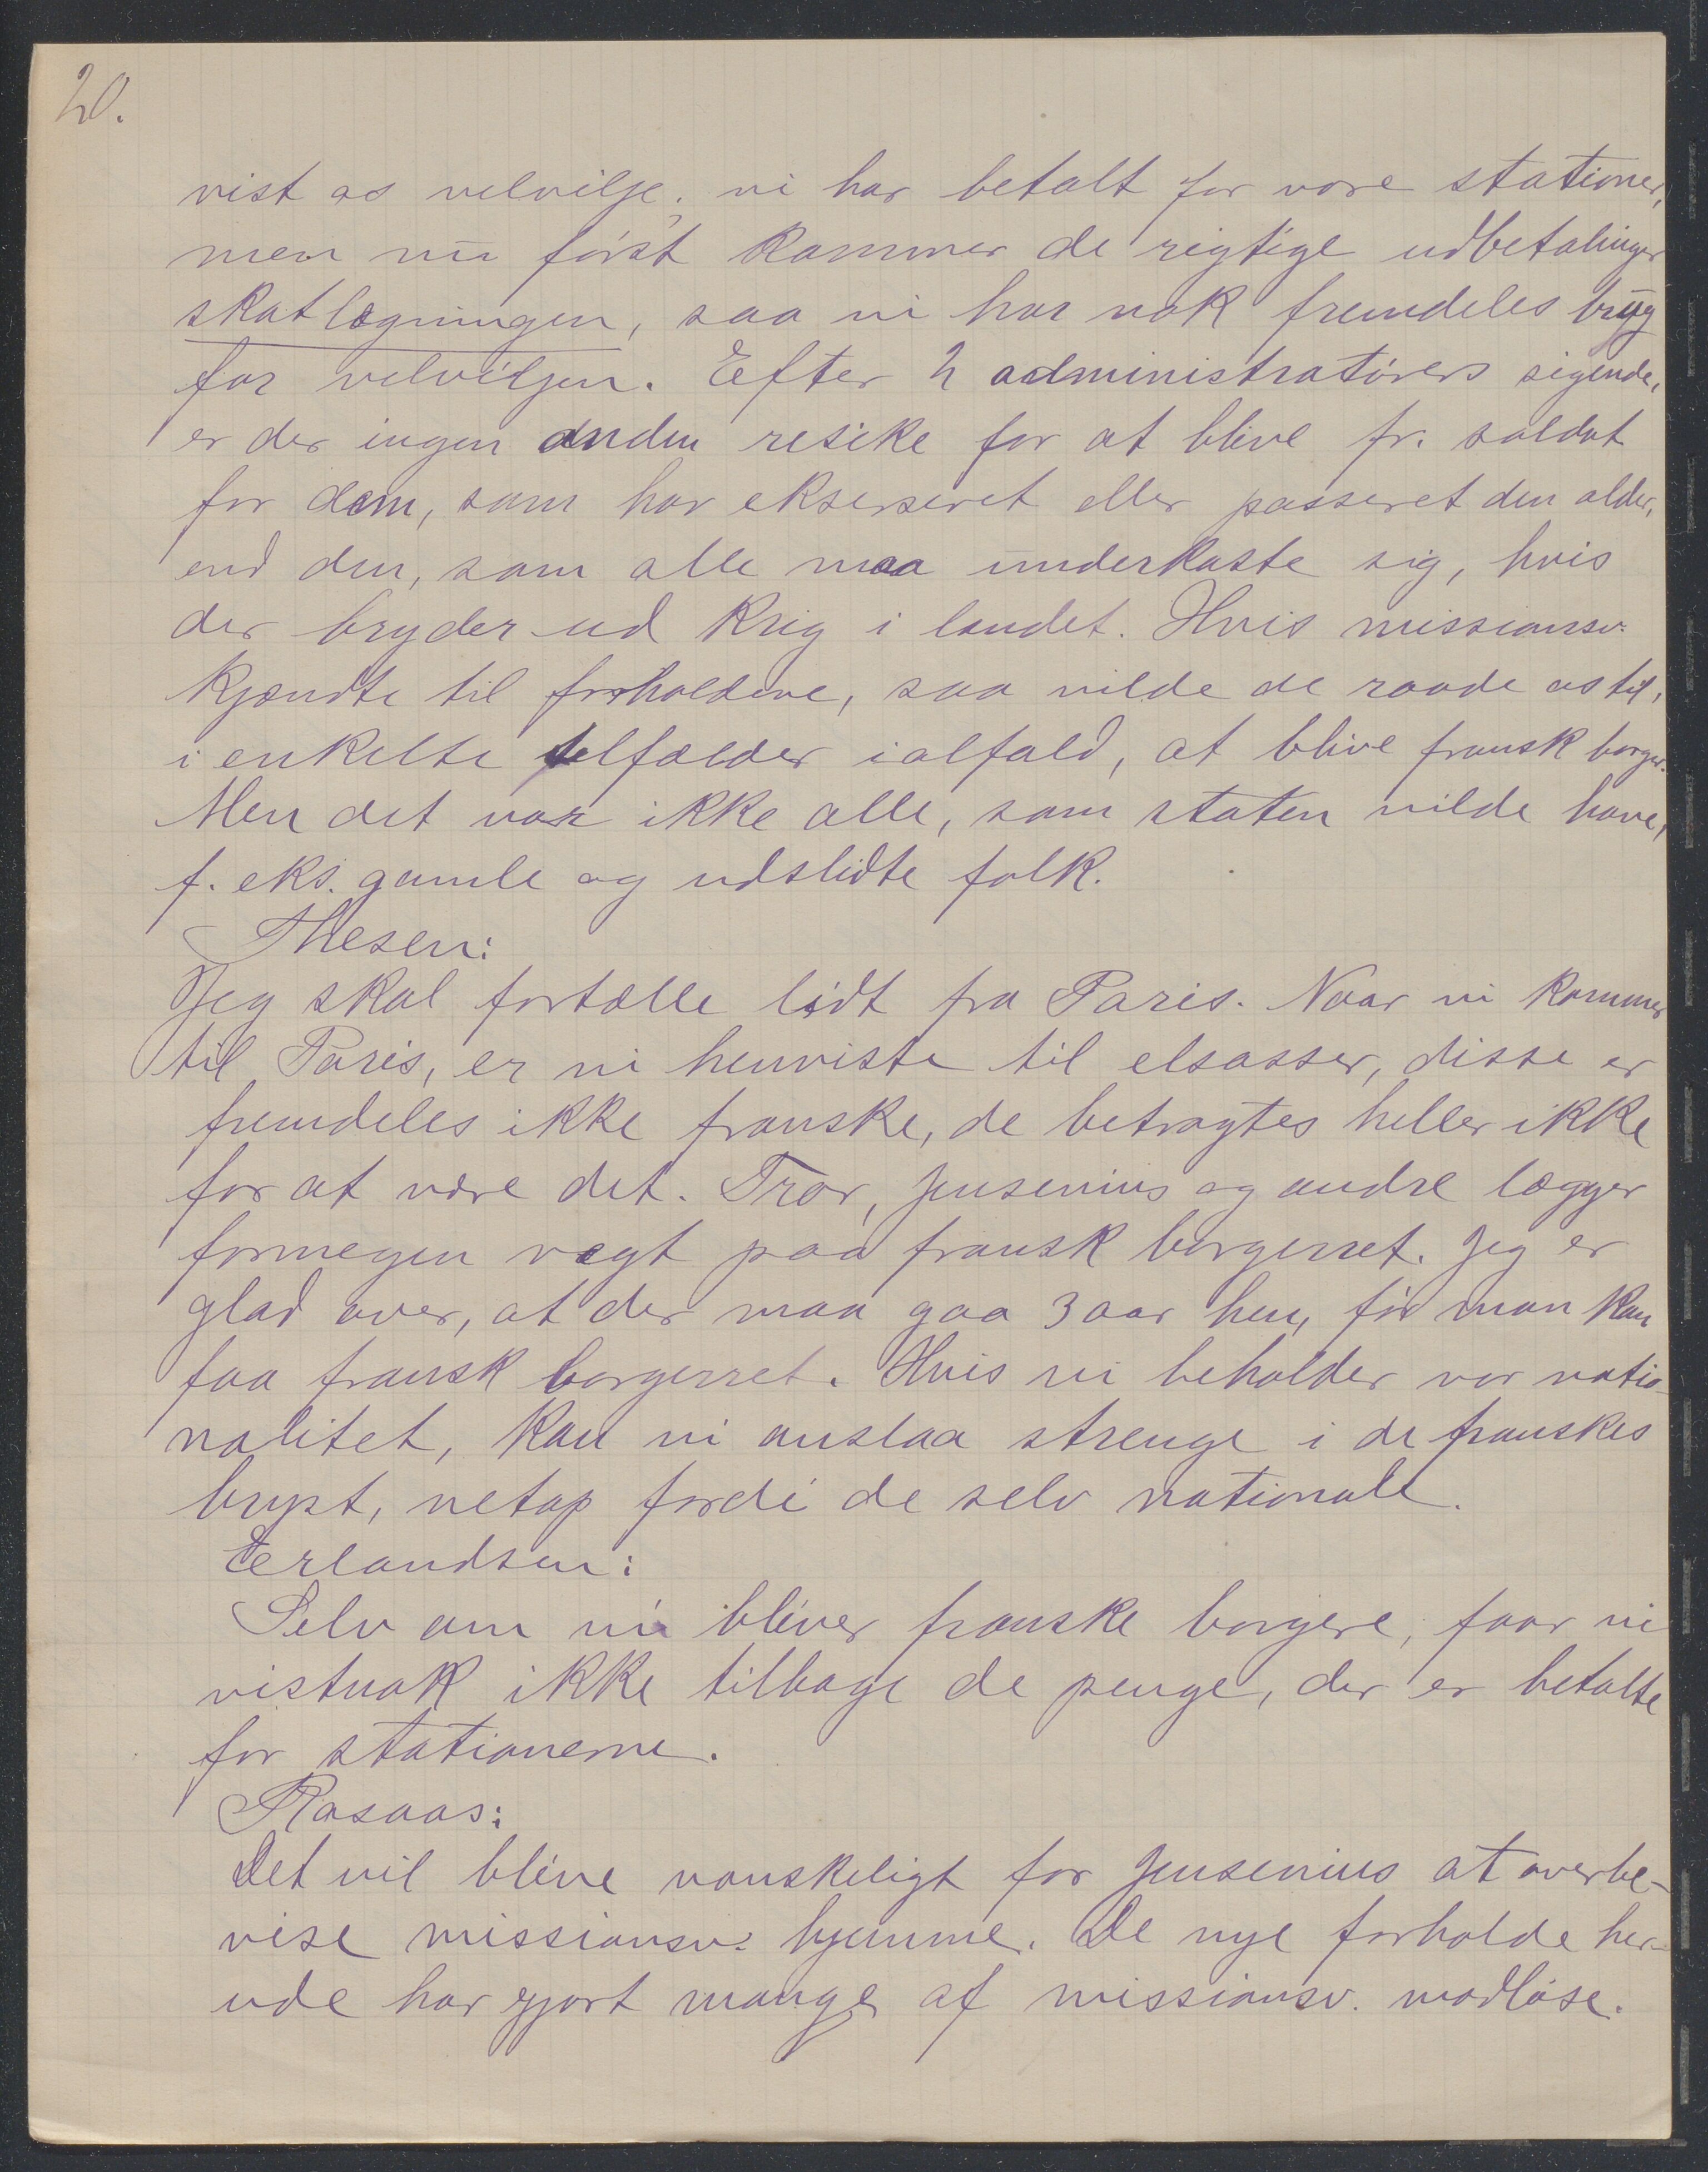 20.
vist os velvilje; vi har betalt for vore stationer,
men nu først kommer de rigtige udbetalinger
skatlægningen, saa vi har nok fremdeles brug
for velviljen. Efter 2 administratørers sigende,
er der ingen anden resike for at blive fr. soldat
for dem, som har ekserseret eller passeret den alder,
end den, som alle maa underkaste sig, hvis
der bryder ud krig i landet. Hvis missionsv.
kjændte til forholdene, saa vilde de raade os til,
i enkelte tilfælder ialfald, at blive fransk borger.
Men det var ikke alle, som staten vilde have,
f. eks. gamle og udslidte folk.
Thesen:
Jeg skal fortælle lidt fra Paris. Naar vi kommer
til Paris, er vi henviste til elsasser, disse er
fremdeles ikke franske, de betragtes heller ikke
for at være det. Tror, Jensenius og andre lægger
formegen vægt paa fransk borgerret. Jeg er
glad over, at der maa gaa 3 aar hen, før man kan
faa fransk borgerret. Hvis vi beholder vor natio-
nalitet, kan vi anslaa strenge i de franskes
bryst, netop fordi de selv nationale.
Erlandsen:
Selv om vi bliver franske borgere, faar vi
vistnok ikke tilbage de penge, der er betalte
for stationerne.
Rosaas:
Det vil blive vanskeligt for Jensenius at overbe-
vise missionsv. hjemme. De nye forholde her-
ude har gjort mange af missionsv. modløse.